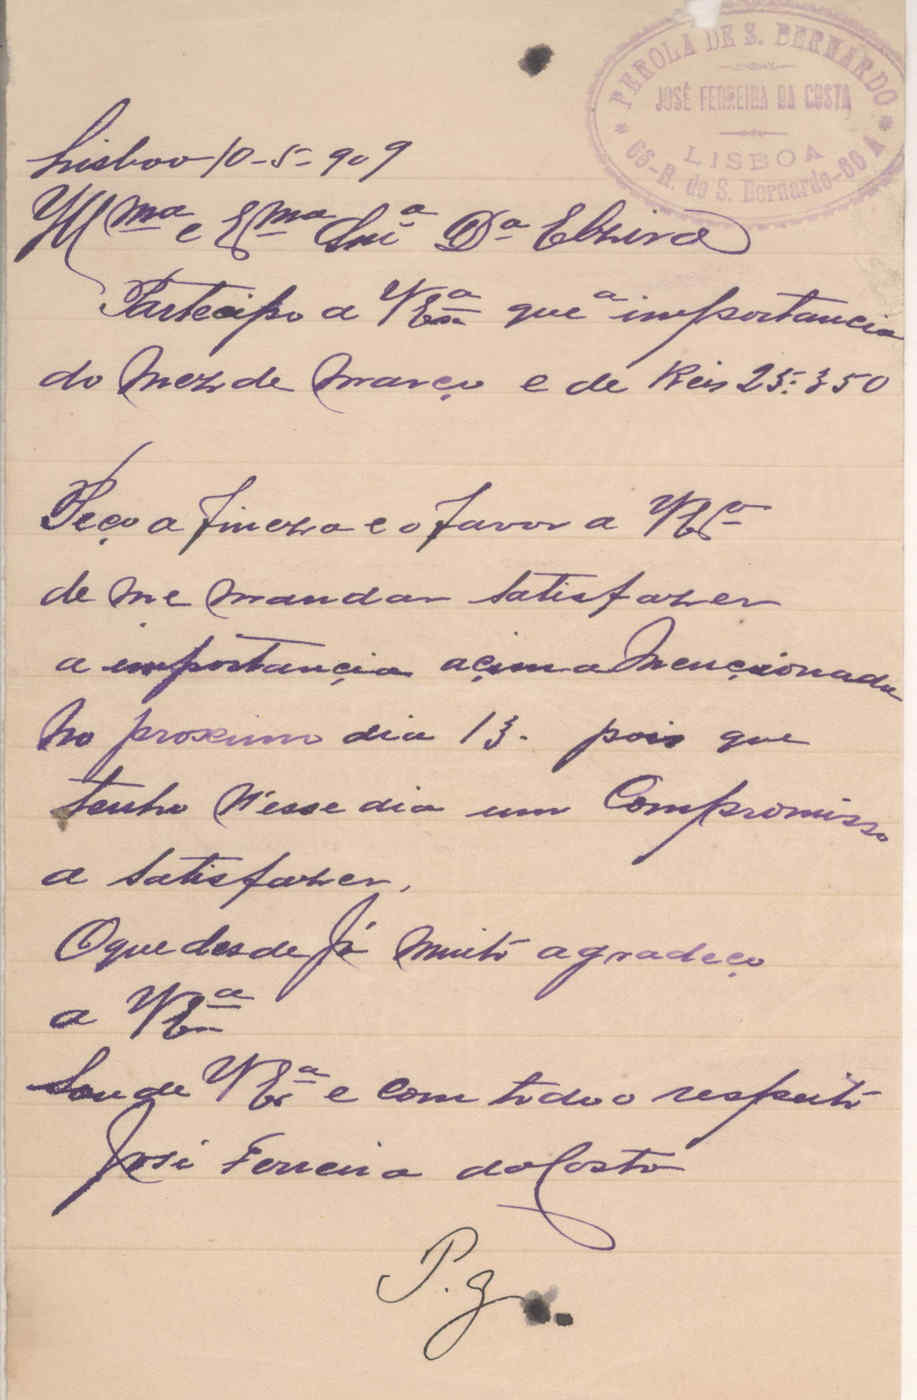 PEROLA DE S. BERNARDO
JOSÉ FERREIRA DA COSTA
LISBOA
66-R. de S. Bernardo-66 A
Lisboa 10-5-909
Illma e Exma Snra Da Elzira
Partecipo a V Exa que a importancia
do Mez de março e de Reis 25:350
Peço a fineza e o favor a V Exa
de me mandar satisfazer
a importançia açima Mençionada
No proximo dia 13. pois que
tenho N'esse dia um Compromisso
a satisfazer,
O que desde Já Muito agradeço
a V Exa
Sou de V Exa e com todo o respeito
José Ferreira da Costa
P. g